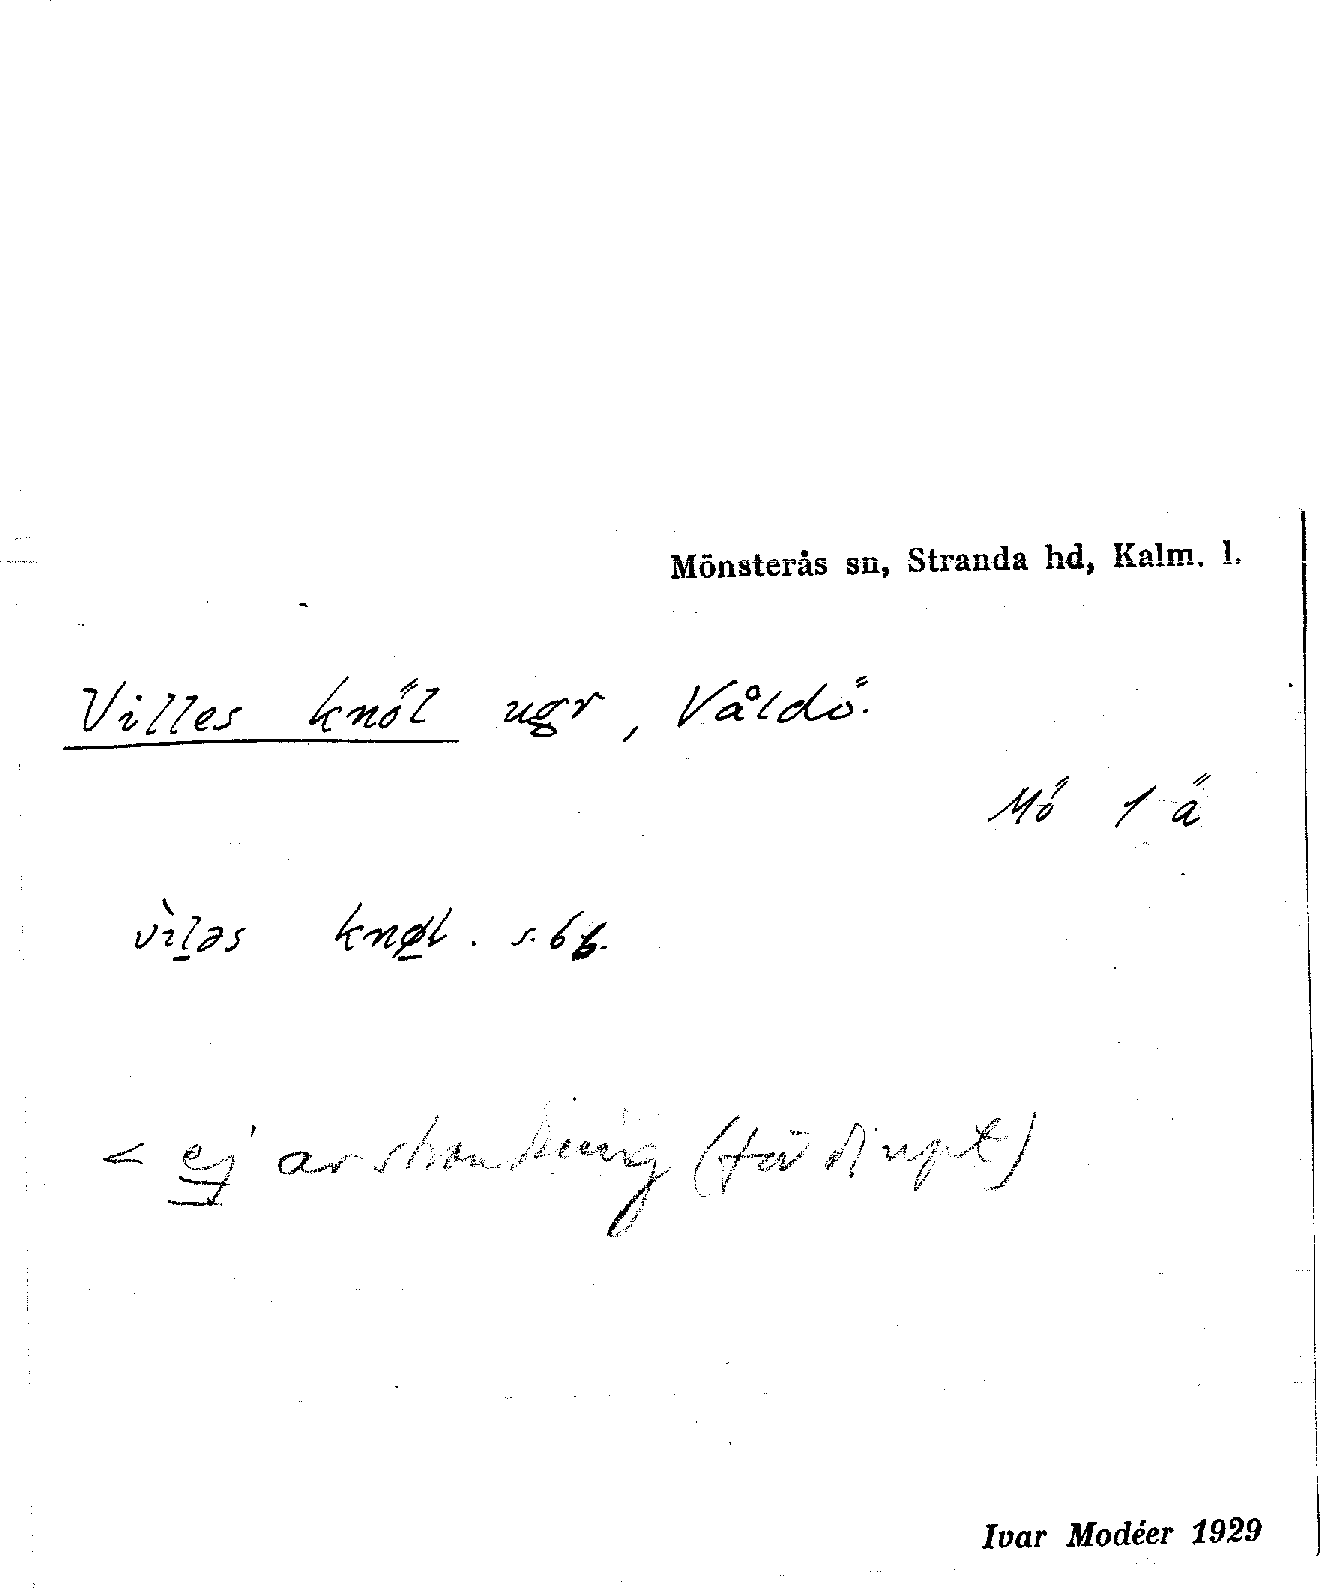 Mönsterås sn, Stranda hd, Kalm. l.
Villes knöl ugr, Våldö.
Mö 1 ä
vìləs knøl. s. bf.
< ej (för djupt)
Ivar Modéer 1929